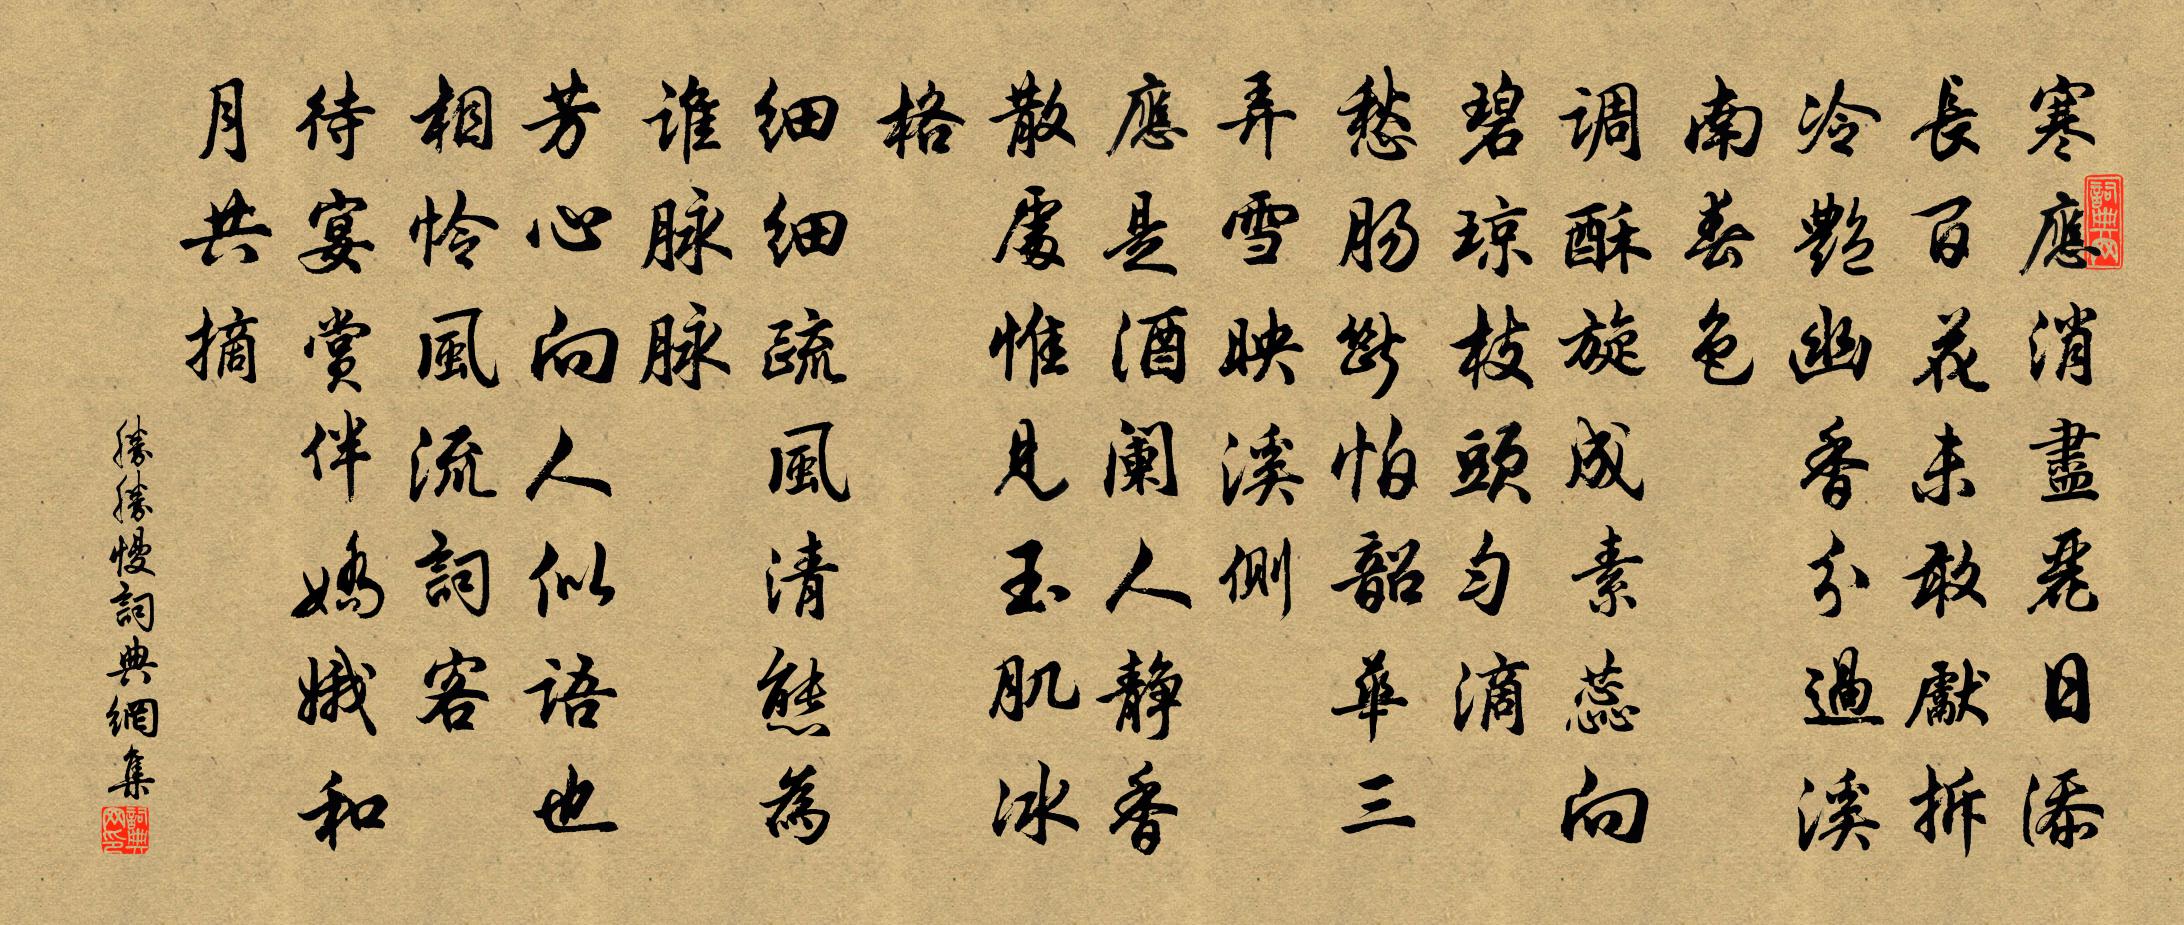 寒應消盡麗日添
長百花未敢獻拆
冷艷幽香分過溪
南春色
调酥旋成素蕊向
碧琼枝頭匀滴
愁肠斷怕韶華三
弄雪映溪側
應是酒阑人静香
散處惟見玉肌冰
格
细细疏風清態為
谁脉脉
芳心向人似语也
相怜風流詞客
待宴赏伴嬌娥和
月共摘
勝勝慢詞典網集
詞典网
詞典网印